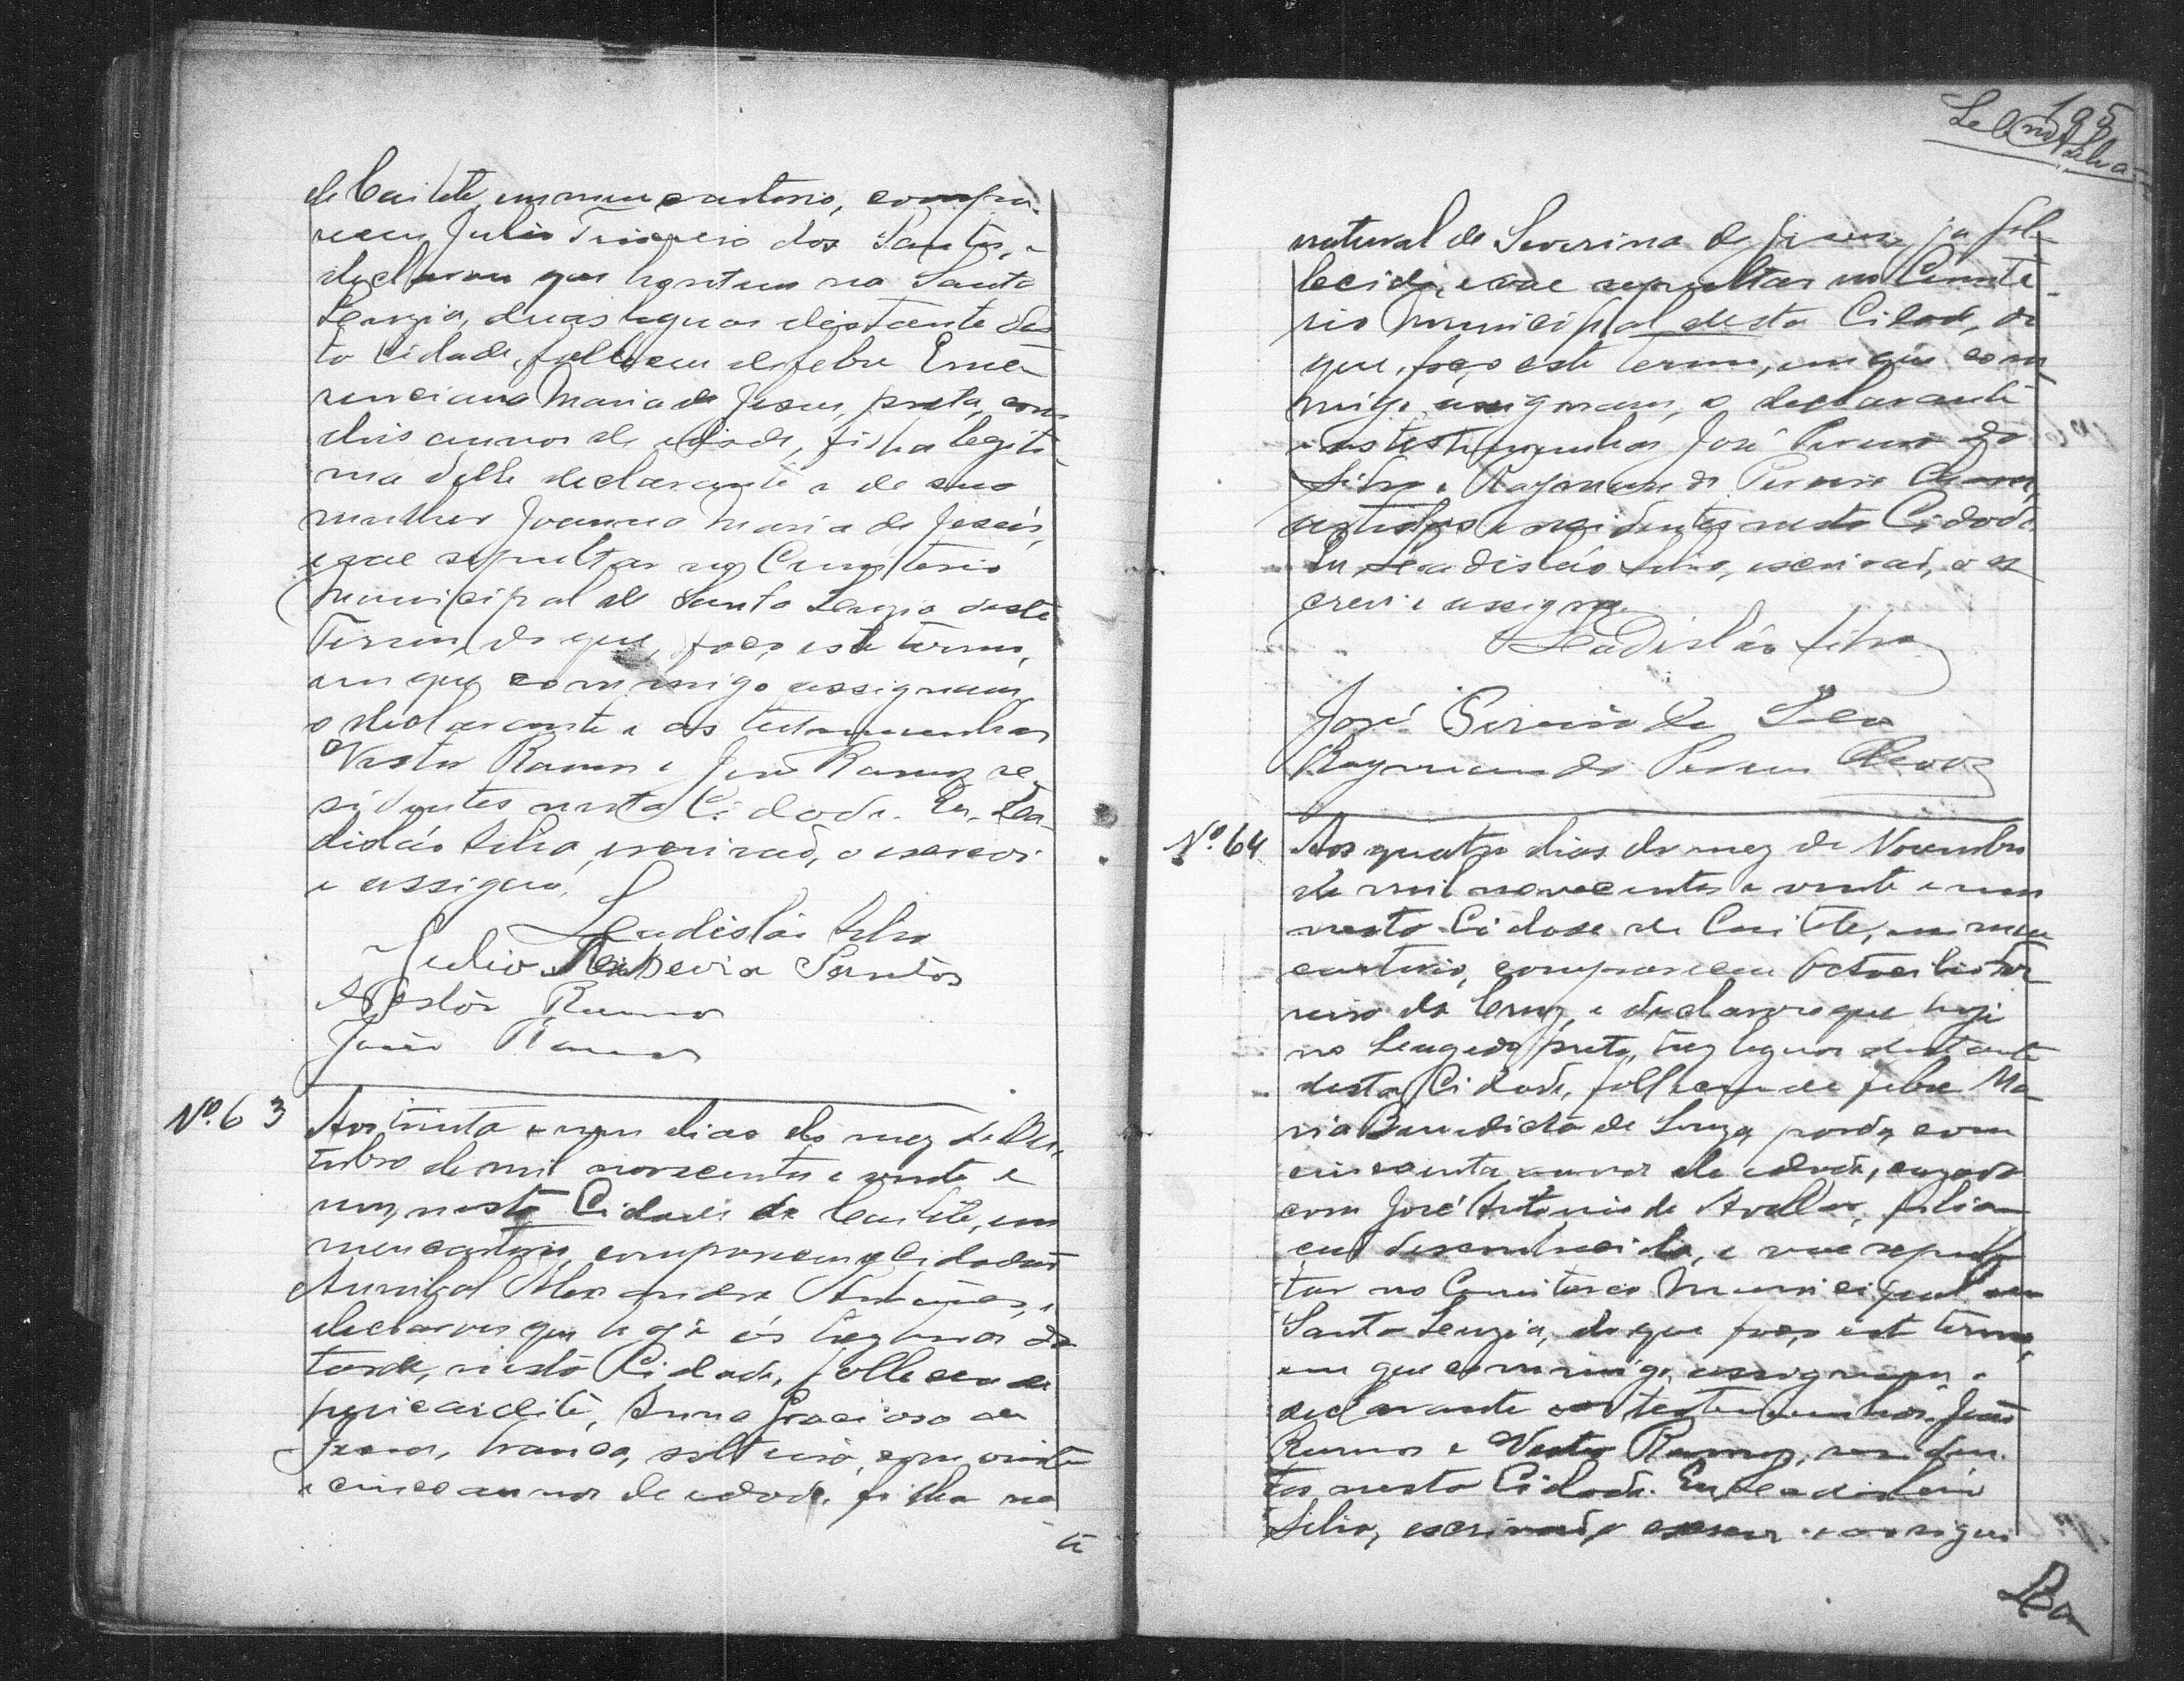 de Caiteté, em meu cartorio, compa-
receu Julio dos Santos, e
declarou que hontem na Santa
Luzia, duas leguas distante des-
ta Cidade, falleceu de febre Eme-
renciana Maria de Jesus, preta, com
dois annos de edade, filha legiti-
ma delle declarante e de sua
mulher Joanna Maria de Jesus,
e vae sepultar no Cemiterio
Municipal de Santa Luzia deste
Termo, do que, faço este termo,
em que commigo assignam,
o declarante e as testemunhas
Nestor Ramos e José Ramos, re-
sidentes nesta Cidade. Eu, Lea-
disláo Silva, escrivão, o escrevi
e assigno.
Leadisláo Silva
Julio Santos
Nestôr Ramos
João Ramos
Nº. 63
Aos trinta e um dias do mez de Ou-
tubro de mil novecentos e vinte e
um, nesta Cidade de Caiteté, em
meu cartorio, compareceu o Cidadão
Annibal Alexandre Antunes, e
declarou que hoje ás trez horas da
tarde, nesta Cidade, falleceu de
pericardite, Anna Graciosa de
Jesus, branca, solteira, com vinte
e cinco annos de edade, filha na
tu
195
Silva
natural de Severina de Jesus, ja fal-
lecida, e vae sepultar no Cemite-
rio Municipal desta Cidade, do
que, faço este termo, em que com-
migo assignam, o declarante
e as testemunhas José Pereira da
Silva e Raymundo Pereira
artistas e residentes nesta Cidade.
Eu, Leadisláo Silva, escrivão, o es-
crevi e assigno.
Leadisláo Silva
José Pereira da Silva
Raymundo Pereira
Nº. 64
Aos quatro dias do mez de Novembro
de mil novecentos e vinte e um
nesta Cidade de Caiteté, em meu
cartorio, compareceu
da Cruz, e declarou que hoje
no preto, trez leguas distante
desta Cidade, falleceu de febre Ma-
ria Benedicta de Souza, parda, com
cincoenta annos de edade, cazada
com José Antonio de Avellar, filia-
ção desconhecida, e vae sepul-
tar no Cemiterio Municipal em
Santa Luzia, do que faço este termo,
em que commigo, assignam o
declarante e as testemunhas João
Ramos e Nestor Ramos, residen-
tes nesta Cidade. Eu, Leadisláo
Silva, escrivão, o escrevi e assigno